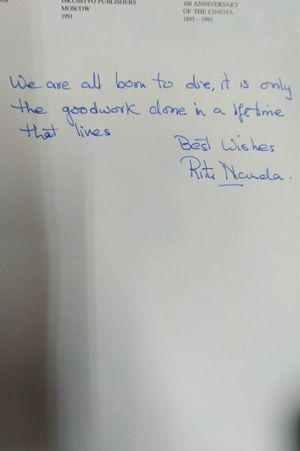 ISKUSSTVO PUBLISHERS
MOSCOW
1991
100 ANNIVERSARY
OF THE CINEMA
1895 – 1995
We are all born to die, it is only
the goodwork done in a lifetime
that lives
Best Wishes
Ritu Nanda.